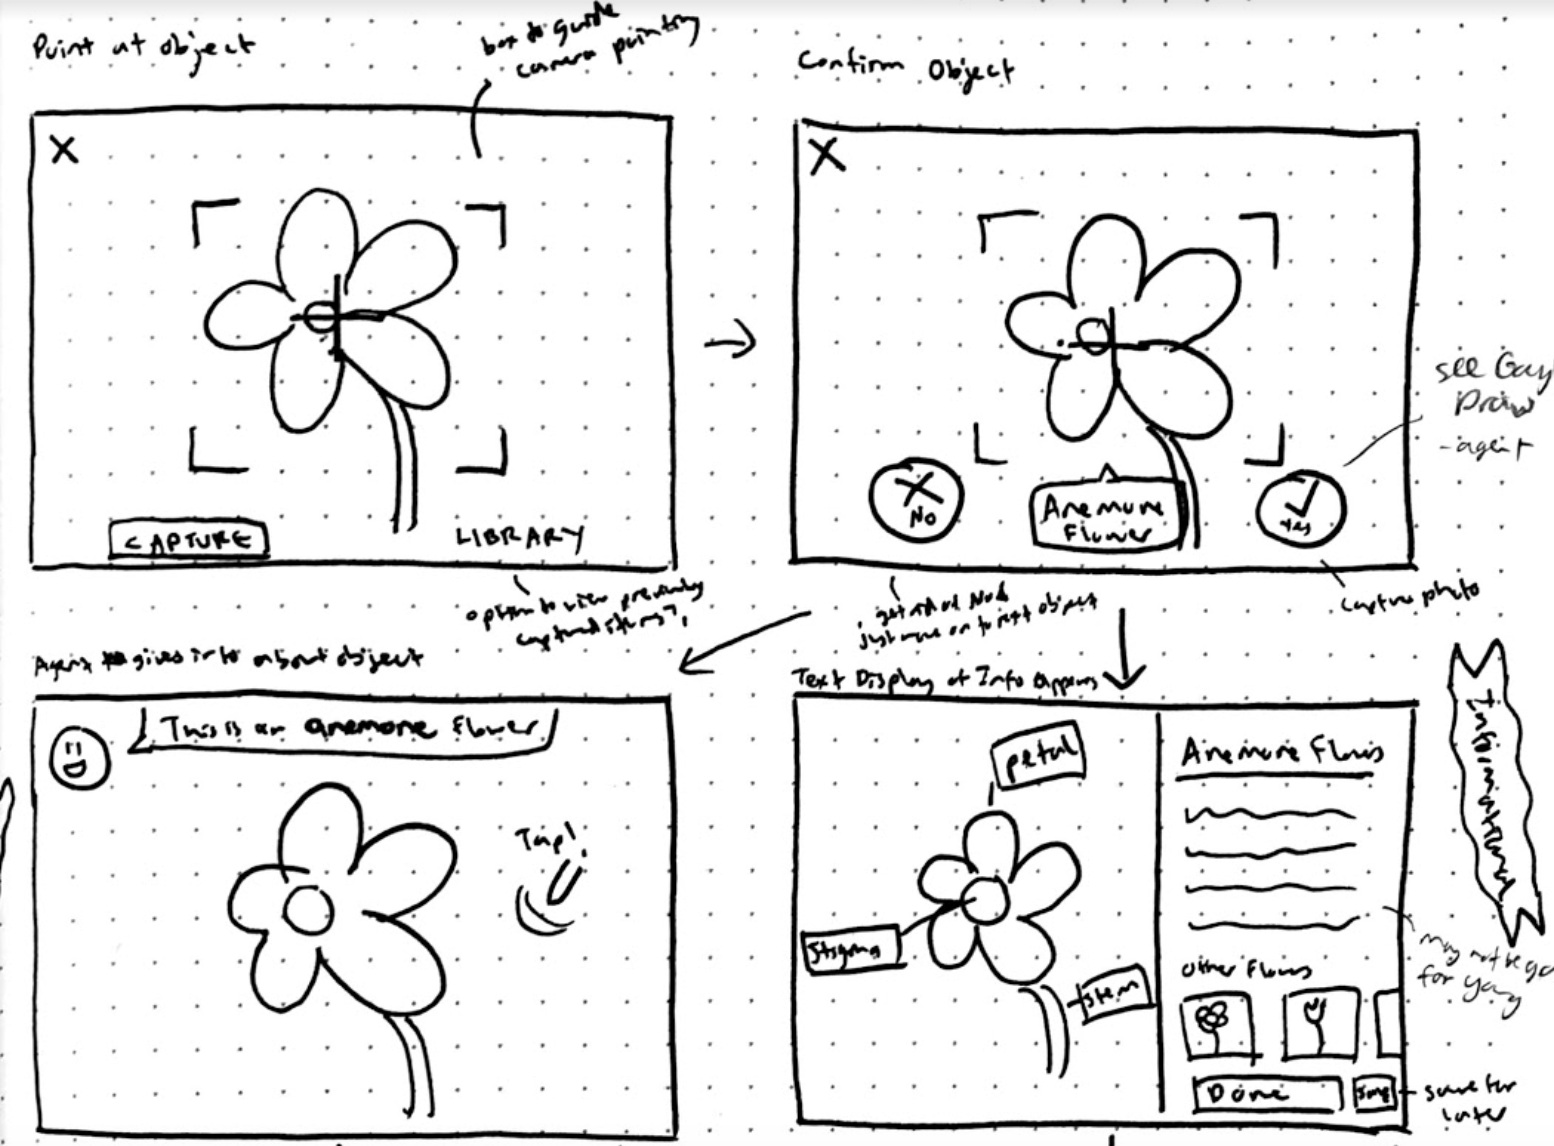 Point at object
box to guide
camera pointing
X
CAPTURE
LIBRARY
option to view previously
captured items?
Confirm Object
X
X
No
Anemone
Flower
Yes
see
Draw
- agent
capture photo
get rid of No &
just move on to next object
Agent gives info about object
This is an anemone flower
Tap!
Text Display of Info Appears
petal
Stigma
stem
Anemone Flower
Other Flowers
Done
save for
later
may not be
for young
Information